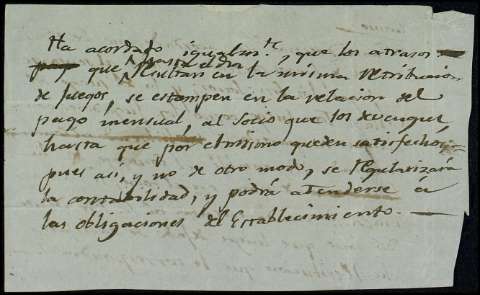 Ha acordado igualmte, que los atrasos
que hasta el dia resultan en la misma retribucion
de juegos, se estampen en la relacion del
pago mensual, al socio que los devengue,
hasta que por ultimo queden satisfechos;
pues asi, y no de otro modo, se regularizará
la contabilidad, y podrá atenderse a
las obligaciones del Establecimiento.